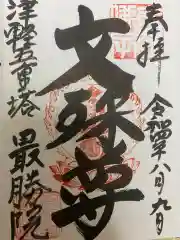 奉拝
令和六年八月九日
文殊尊
津軽五重塔
最勝院